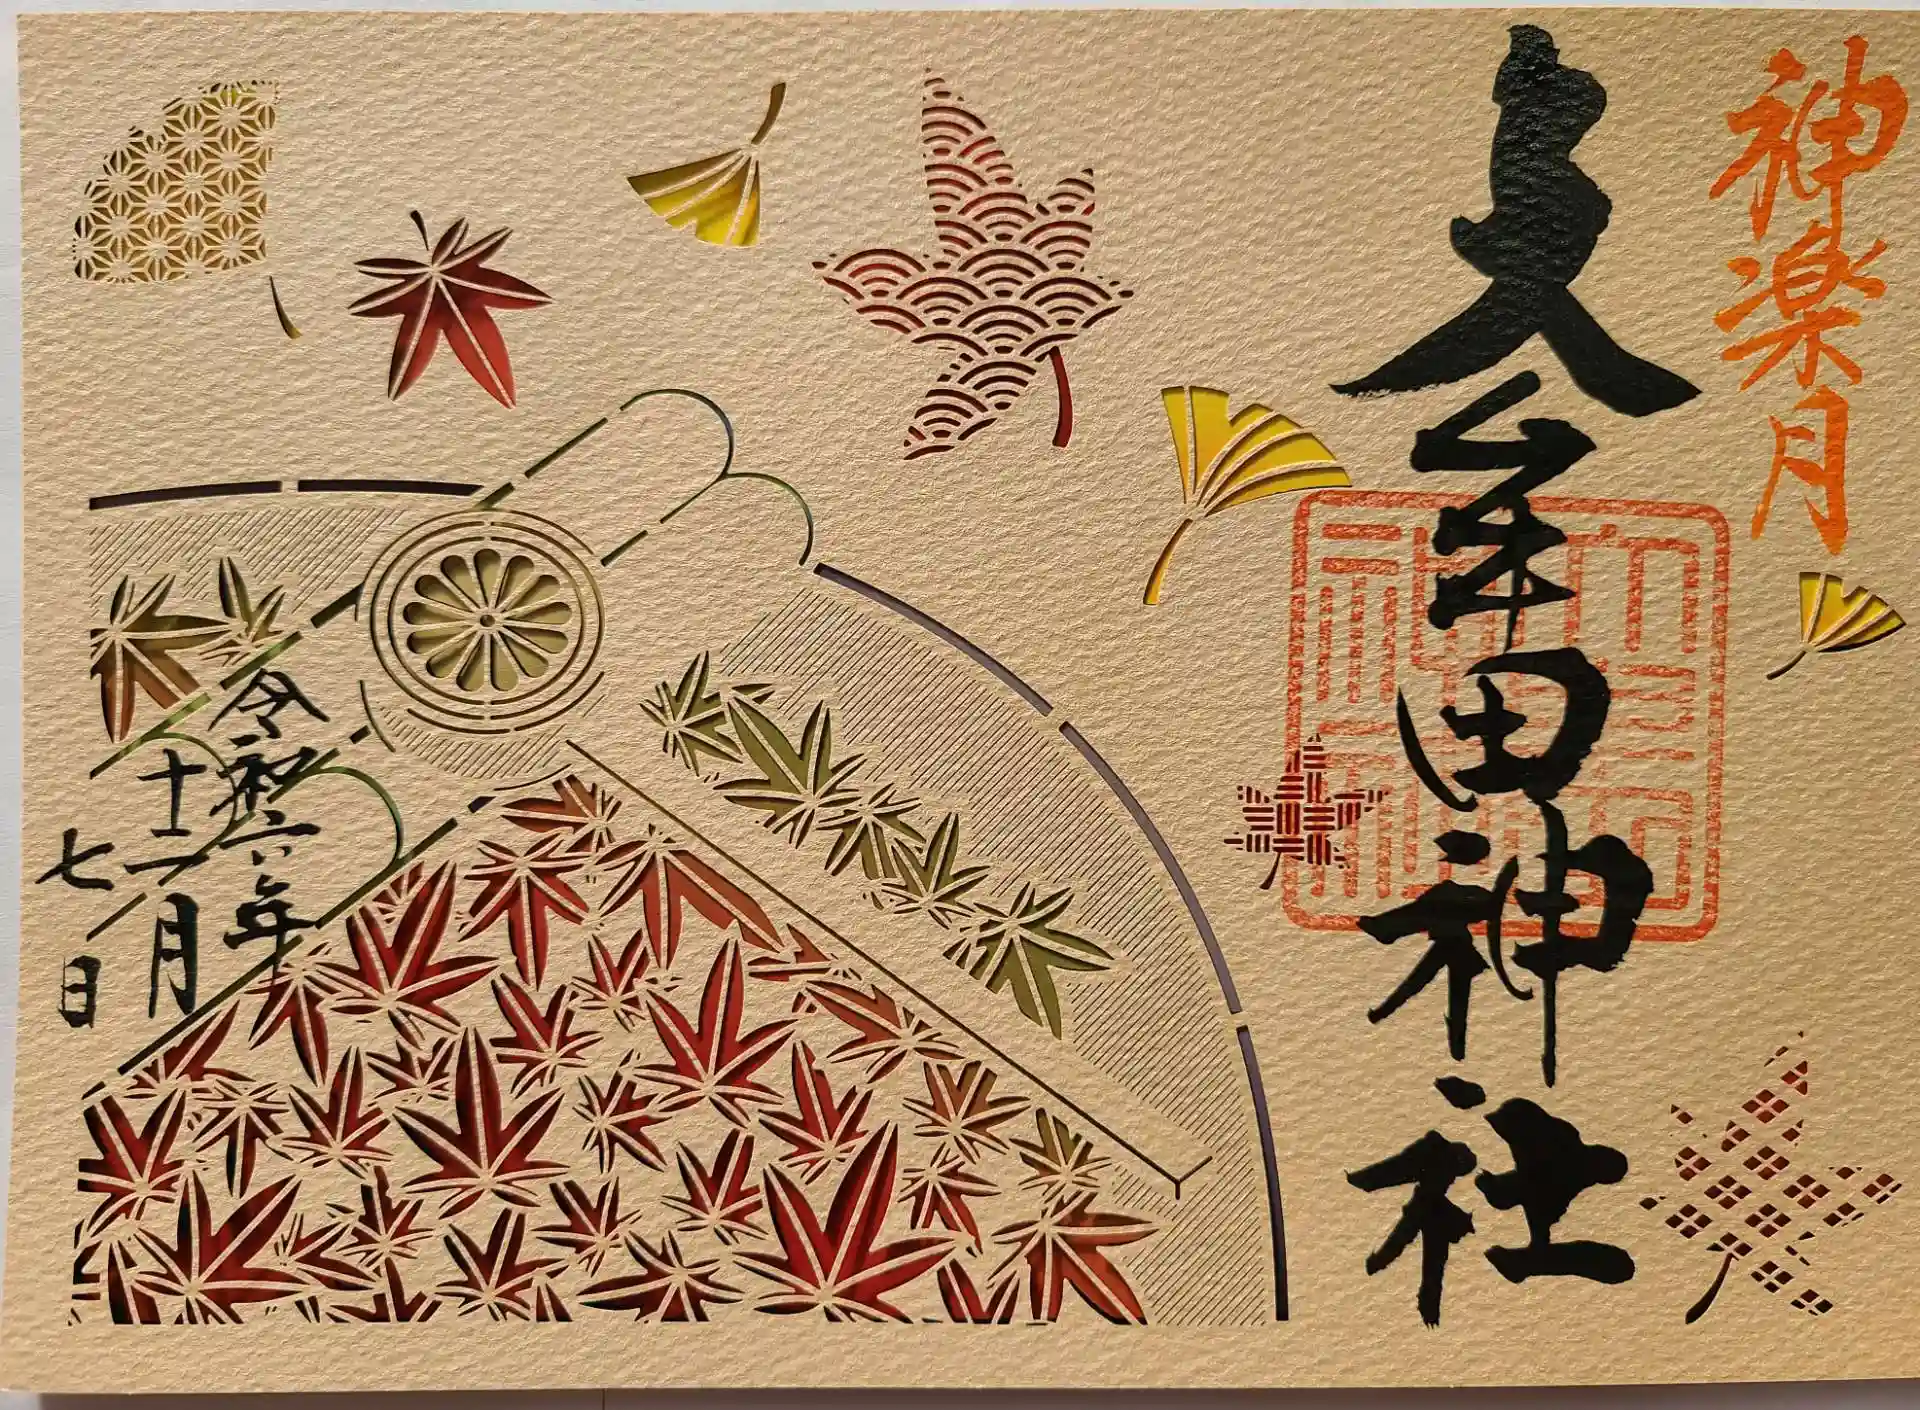 神楽月
大牟田神社
令和六年
十一月
七日